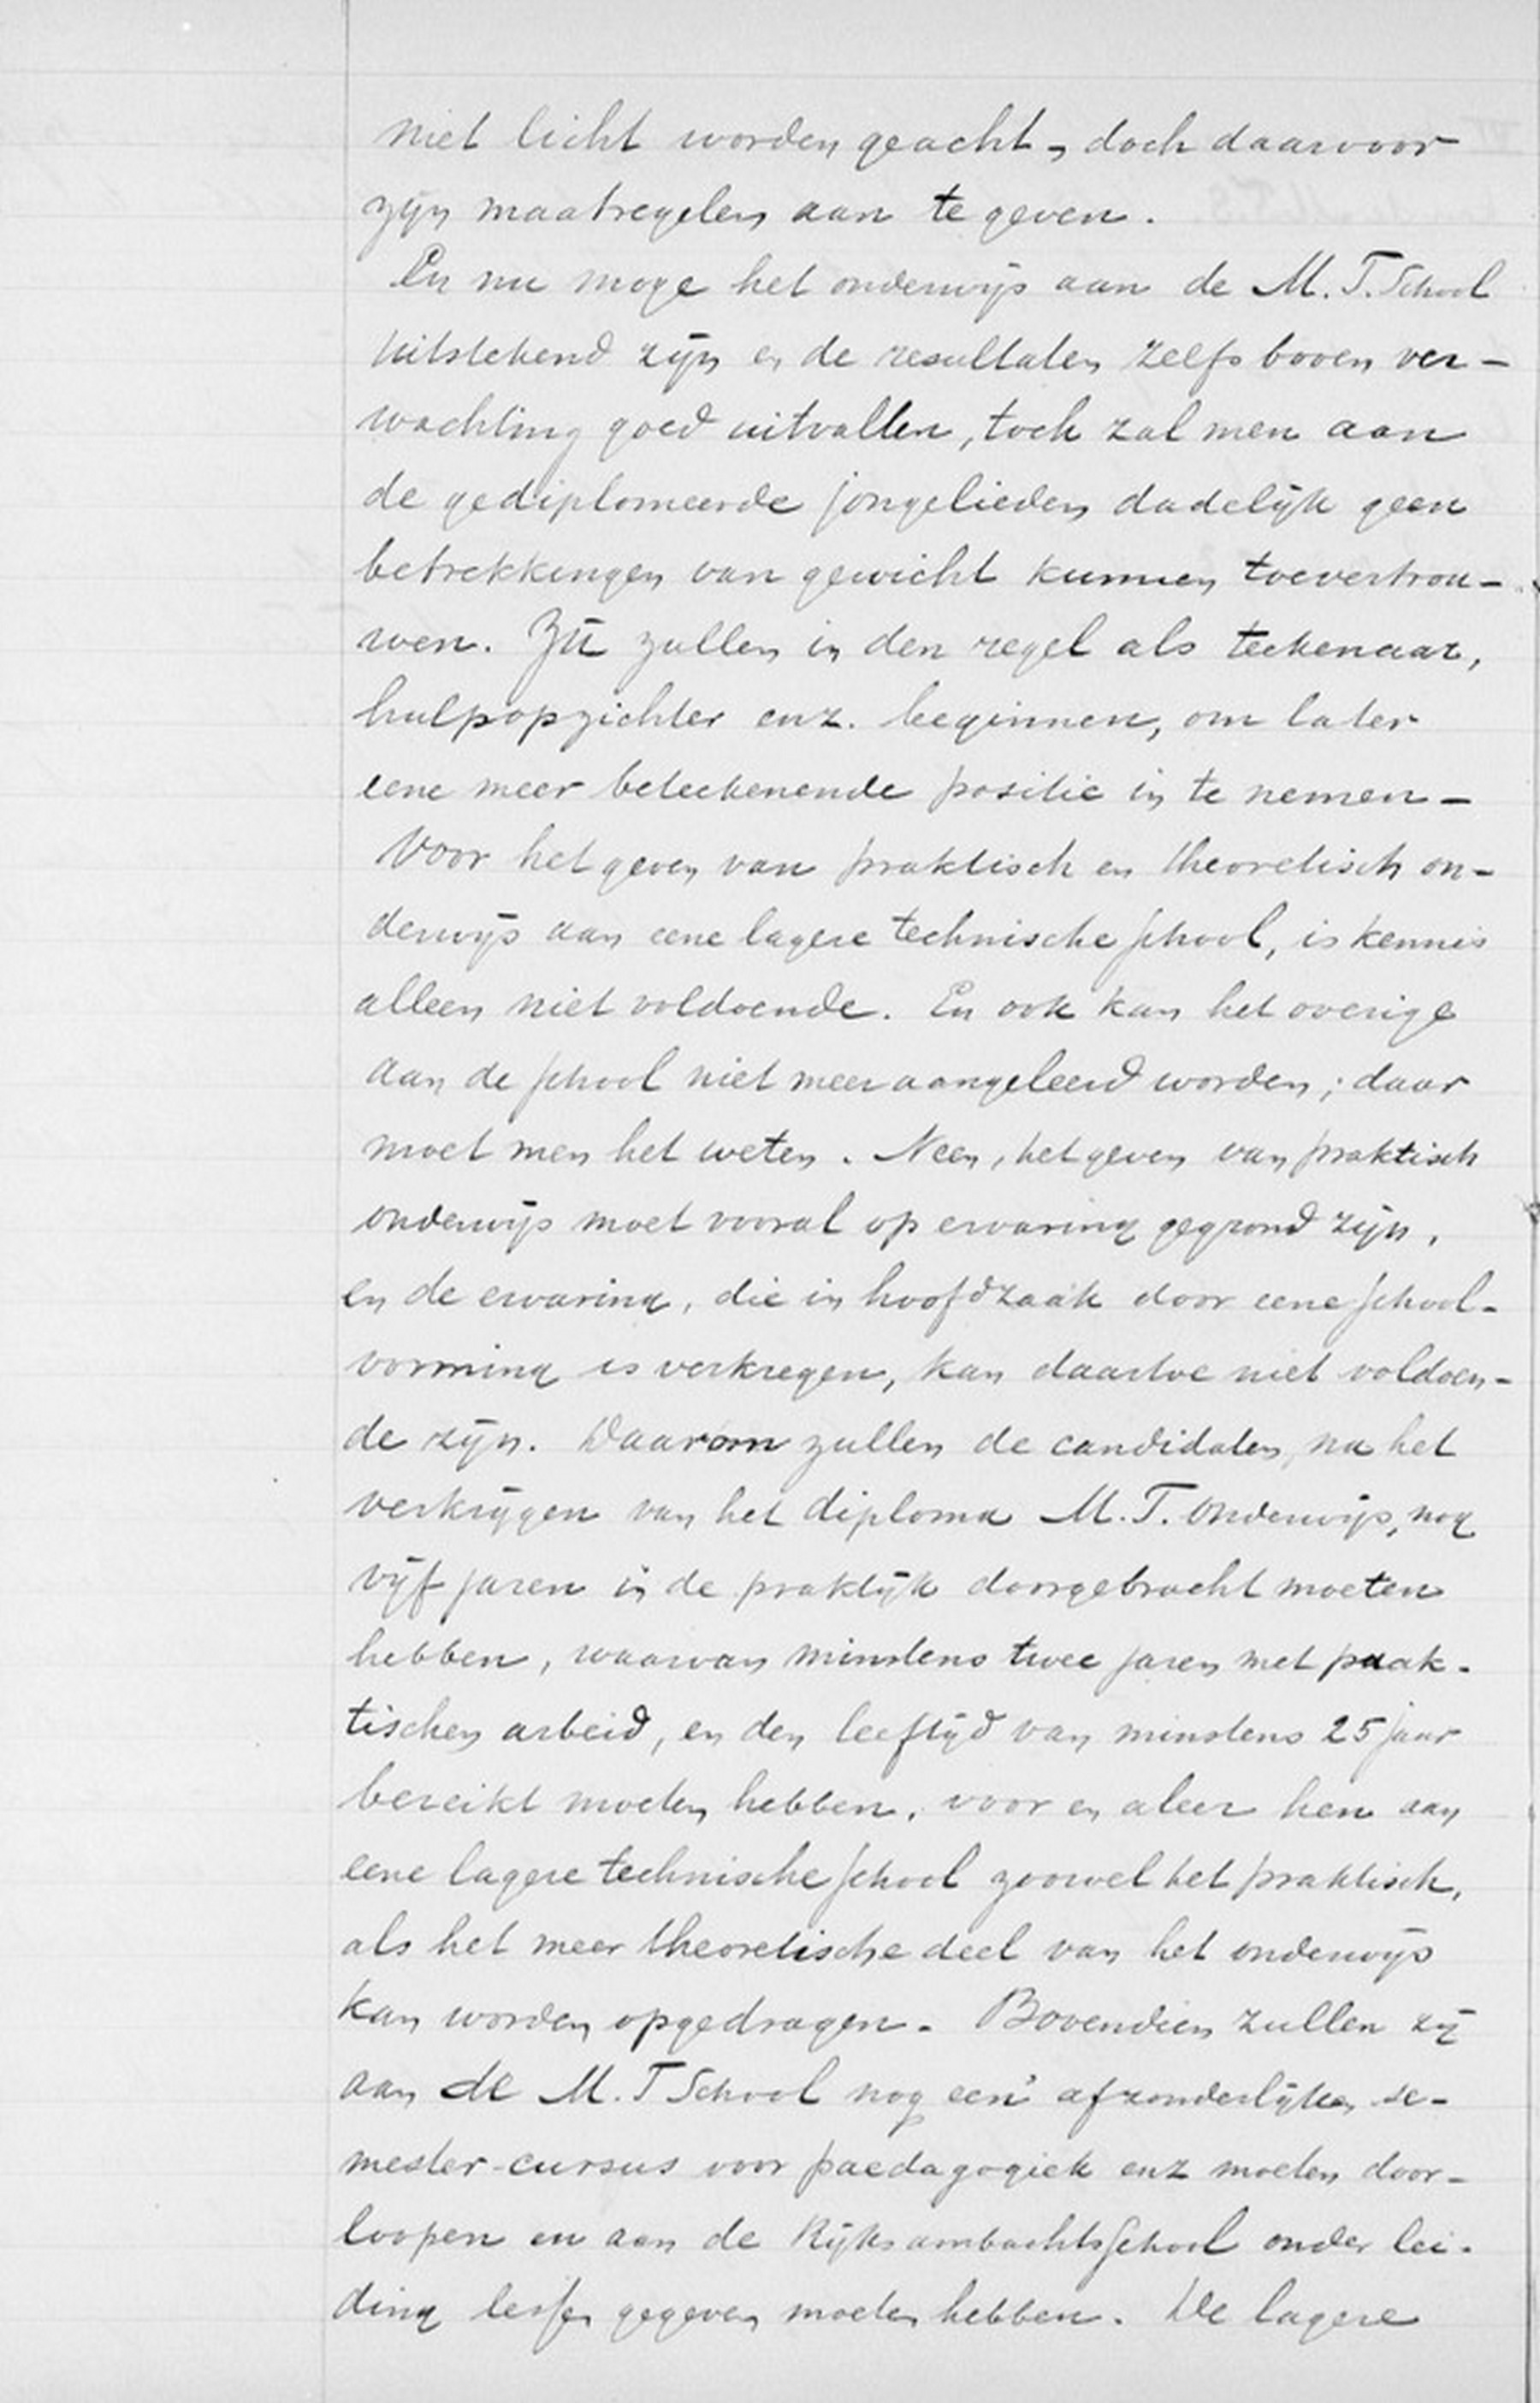 niet licht worden geacht, doch daarvoor
zijn maatregelen aan te geven.
En nu moge het onderwijs aan de M. T. School
uitstekend zijn en de resultaten zelfs boven ver-
wachting goed uitvallen, toch zal men aan
de gediplomeerde jongelieden dadelijk geen
betrekkingen van gewicht kunnen toevertrou-
wen. Zij zullen in den regel als teekenaar,
hulpopzichter enz. beginnen, om later
eene meer beteekenende positie in te nemen -
Voor het geven van praktisch en theoretisch on-
derwijs aan eene lagere technische school, is kennis
alleen niet voldoende. En ook kan het overige
aan de school niet meer aangeleerd worden; daar
moet men het weten. Neen, het geven van praktisch
onderwijs moet vooral op ervaring gegrond zijn,
en de ervaring, die in hoofdzaak door eene school-
vorming is verkregen, kan daartoe niet voldoen-
de zijn. Daarom zullen de candidaten, na het
verkrijgen van het diploma M. T. Onderwijs, nog
vijf jaren in de praktijk doorgebracht moeten
hebben, waarvan minstens twee jaren met prak-
tischen arbeid, en den leeftijd van minstens 25 jaar
bereikt moeten hebben, voor en aleer hen aan
eene lagere technische school zoowel het praktisch,
als het meer theoretische deel van het onderwijs
kan worden opgedragen. Bovendien zullen zij
aan de M. T School nog een afzonderlijken se-
mester-cursus voor paedagogiek enz moeten door-
loopen en aan de Rijksambachtsschool onder lei-
ding lessen gegeven moeten hebben. De lagere